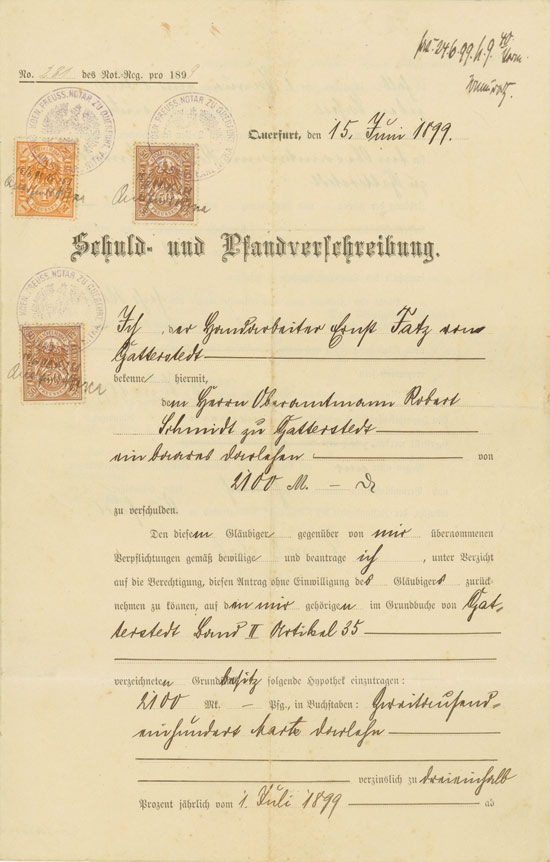 24.6.99.
No. des Not.-Reg. pro 189
Querfurt, den 15. Juni 1899.
KOEN. PREUSS. NOTAR ZU QUERFURT
Schuld- und Pfandverschreibung.
Ich der Handarbeiter Ernst Tatz von
Gatterstedt
bekenne hiermit,
dem Herrn Oberamtmann Robert
Schmidt zu Gatterstedt
ein baares Darlehen von
2100 M. –
zu verschulden.
Den diesem Gläubiger gegenüber von mir übernommenen
Verpflichtungen gemäß bewillige und beantrage ich, unter Verzicht
auf die Berechtigung, diesen Antrag ohne Einwilligung des Gläubigers zurück-
nehmen zu können, auf dem mir gehörigen im Grundbuche von Gat-
terstedt Band II Artikel 35
verzeichneten Grundbesitz folgende Hypothek einzutragen:
2100 Mk. – Pfg., in Buchstaben: Zweitausend-
einhundert Mark Darlehn
verzinslich zu dreieinhalb
Prozent jährlich vom 1. Juli 1899 ab